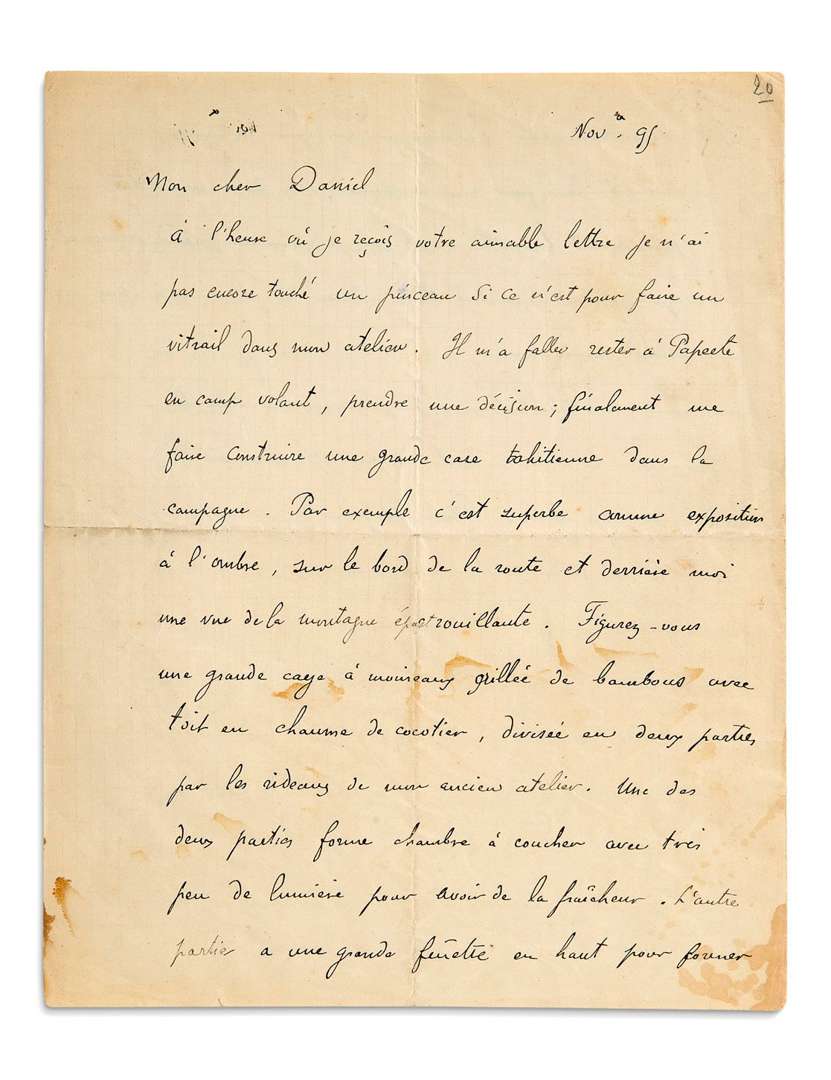 20
Nov.re 95
Mon cher Daniel
A l'heure où je reçois votre aimable lettre je n'ai
pas encore touché un pinceau si ce n'est pour faire un
vitrail dans mon atelier. Il m'a fallu rester à Papeete
en camp volant, prendre une décision ; finalement me
faire construire une grande case tahitienne dans la
campagne. Par exemple c'est superbe comme exposition
à l'ombre, sur le bord de la route et derrière moi
une vue de la montagne épastrouillante. Figurez-vous
une grande cage à moineaux grillée de bambous avec
toit en chaume de cocotier, divisée en deux parties
par les rideaux de mon ancien atelier. Une des
deux parties forme chambre à coucher avec très
peu de lumière pour avoir de la fraîcheur. L'autre
partie a une grande fenêtre en haut pour former